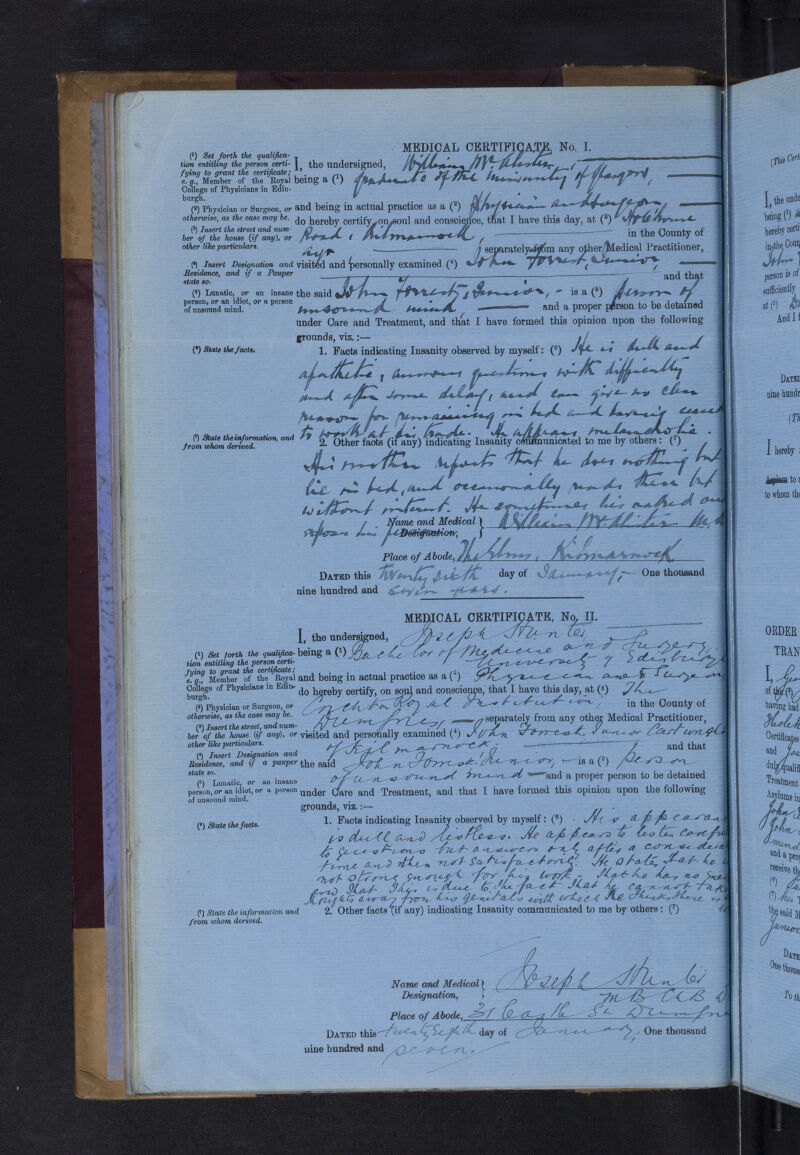 MEDICAL CERTIFICATE, No. I.
(¹) Set forth the qualifica-
tion entitling the person certi-
fying to grant the certificate;
e. g., Member of the Royal
College of Physicians in Edin-
burgh.
(²) Physician or Surgeon, or
otherwise, as the case may be.
(³) Insert the street and num-
ber of the house (if any), or
other like particulars.
(⁴) Insert Designation and
Residence, and if a Pauper
state so.
(⁵) Lunatic, or an insane
person, or an idiot, or a person
of unsound mind.
(⁶) State the facts.
(⁷) State the information, and
from whom derived.
I, the undersigned, William McAlister,
being a (¹) graduate of the university of Glasgow,
and being in actual practice as a (²) Physician and Surgeon,
do hereby certify, on soul and conscience, that I have this day, at (³) Holehouse
Road, Kilmarnock, in the County of
Ayr separately from any other Medical Practitioner,
visited and personally examined (⁴) John Forrest, Junior, and that
the said John Forrest, Junior, - is a (⁵) person of
unsound mind, and a proper person to be detained
under Care and Treatment, and that I have formed this opinion upon the following
grounds, viz.:—
1. Facts indicating Insanity observed by myself: (⁶) He is dull and
apathetic, answers questions with difficulty
and after some delay, and can give no clear
reason for remaining in bed and having ceased
to work at his trade. He appears melancholic.
2. Other facts (if any) indicating Insanity communicated to me by others: (⁷)
His mother reports that he does nothing but
lie in bed, and occasionally reads there but
without interest. He sometimes lies naked and
exposes his person.
Name and Medical Designation, William McAlister M.B
Place of Abode, The Elms, Kilmarnock
DATED this twenty sixth day of January, One thousand
nine hundred and seven years.
MEDICAL CERTIFICATE, No. II.
(¹) Set forth the qualifica-
tion entitling the person certi-
fying to grant the certificate;
e. g., Member of the Royal
College of Physicians in Edin-
burgh.
(²) Physician or Surgeon, or
otherwise, as the case may be.
(³) Insert the street, and num-
ber of the house (if any), or
other like particulars.
(⁴) Insert Designation and
Residence, and if a pauper
state so.
(⁵) Lunatic, or an insane
person, or an idiot, or a person
of unsound mind.
(⁶) State the facts.
(⁷) State the information and
from whom derived.
I, the undersigned, Joseph Hunter
being a (¹) Bachelor of Medicine and Surgery,
University of Edinburgh
and being in actual practice as a (²) Physician and Surgeon
do hereby certify, on soul and conscience, that I have this day, at (³) The
Crichton Royal Institution, in the County of
Dumfries, separately from any other Medical Practitioner,
visited and personally examined (⁴) John Forrest Junior Cartwright
of Kilmarnock, and that
the said John Forrest Junior, - is a (⁵) person
of unsound mind and a proper person to be detained
under Care and Treatment, and that I have formed this opinion upon the following
grounds, viz.:—
1. Facts indicating Insanity observed by myself: (⁶) His appearan
is dull and listless. He appears to listen
to questions but answers only after a considera
time and then not satisfactorily. He states that he
not strong enough for his work, that he has no
and that this is due to the fact that he cannot take
thoughts away from his genitals with which he thinks there is
2. Other facts (if any) indicating Insanity communicated to me by others: (⁷)
Name and Medical Designation, Joseph Hunter
M B Ch B
Place of Abode, 31 Castle St Dumfries
DATED this twenty eighth day of January, One thousand
nine hundred and seven.
(This Cert
I, the unde
being (¹)
hereby certi
in the Coun
John
person is of
sufficiently
at (³)
And I f
DATED
nine hundr
(Th
I hereby
Asylum to
to whom the
ORDER
TRAN
I,
of
having had
Certificates
and
duly qualifi
Treatment
Asylums in
John
mind
and a prop
receive th
the said
Junior
DATE
One thousa
To th